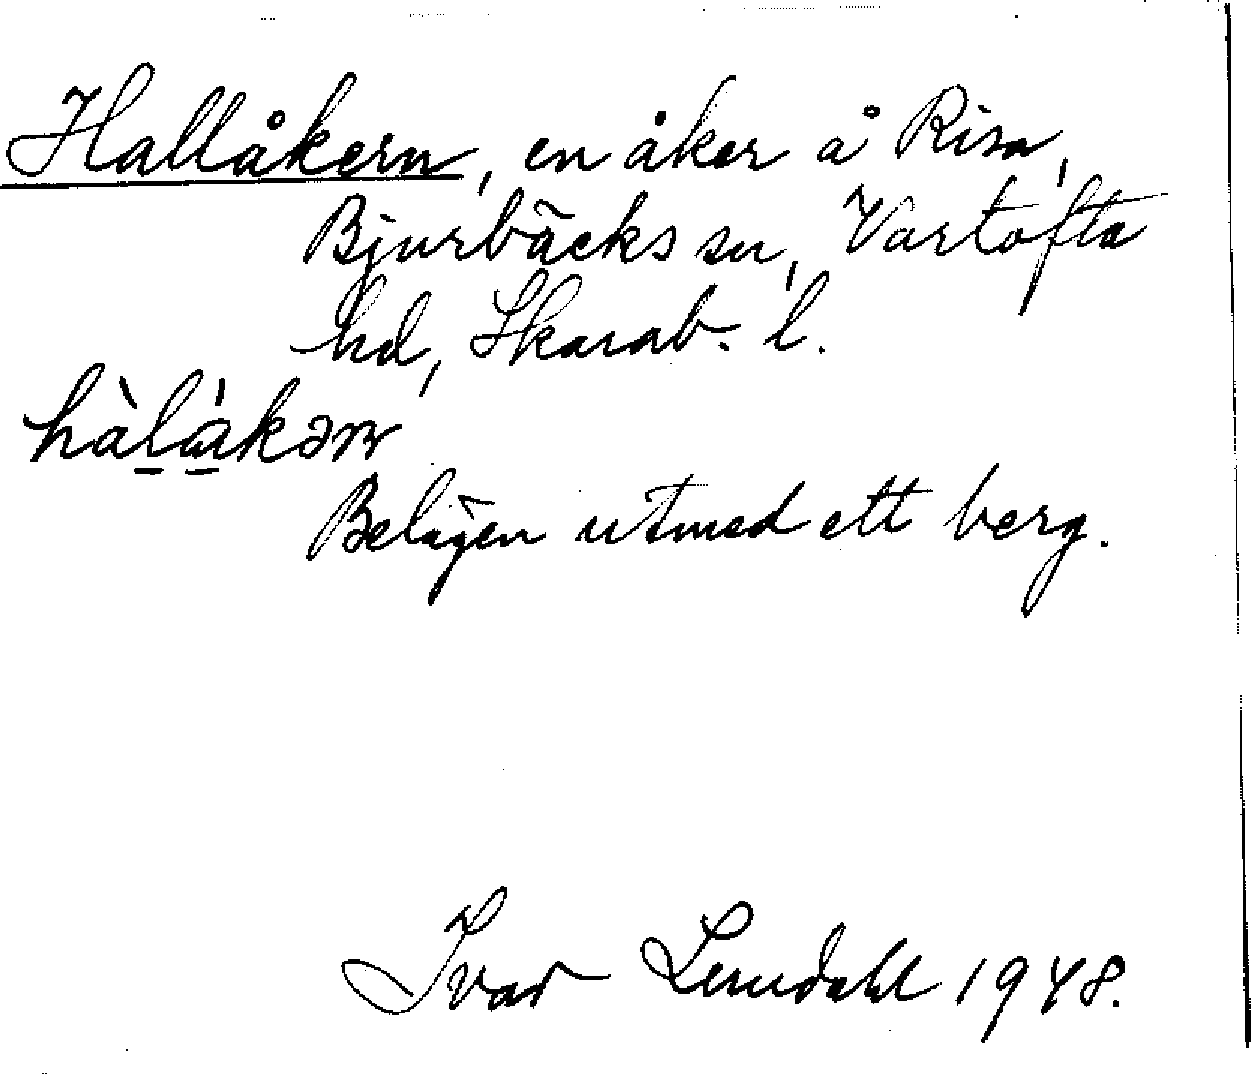 Hallåkern, en åker å Risa,
Bjurbäcks sn, Vartofta
hd, Skarab. l.
hàlåkərn
Belägen utmed ett berg.
Ivar Lundahl 1948.